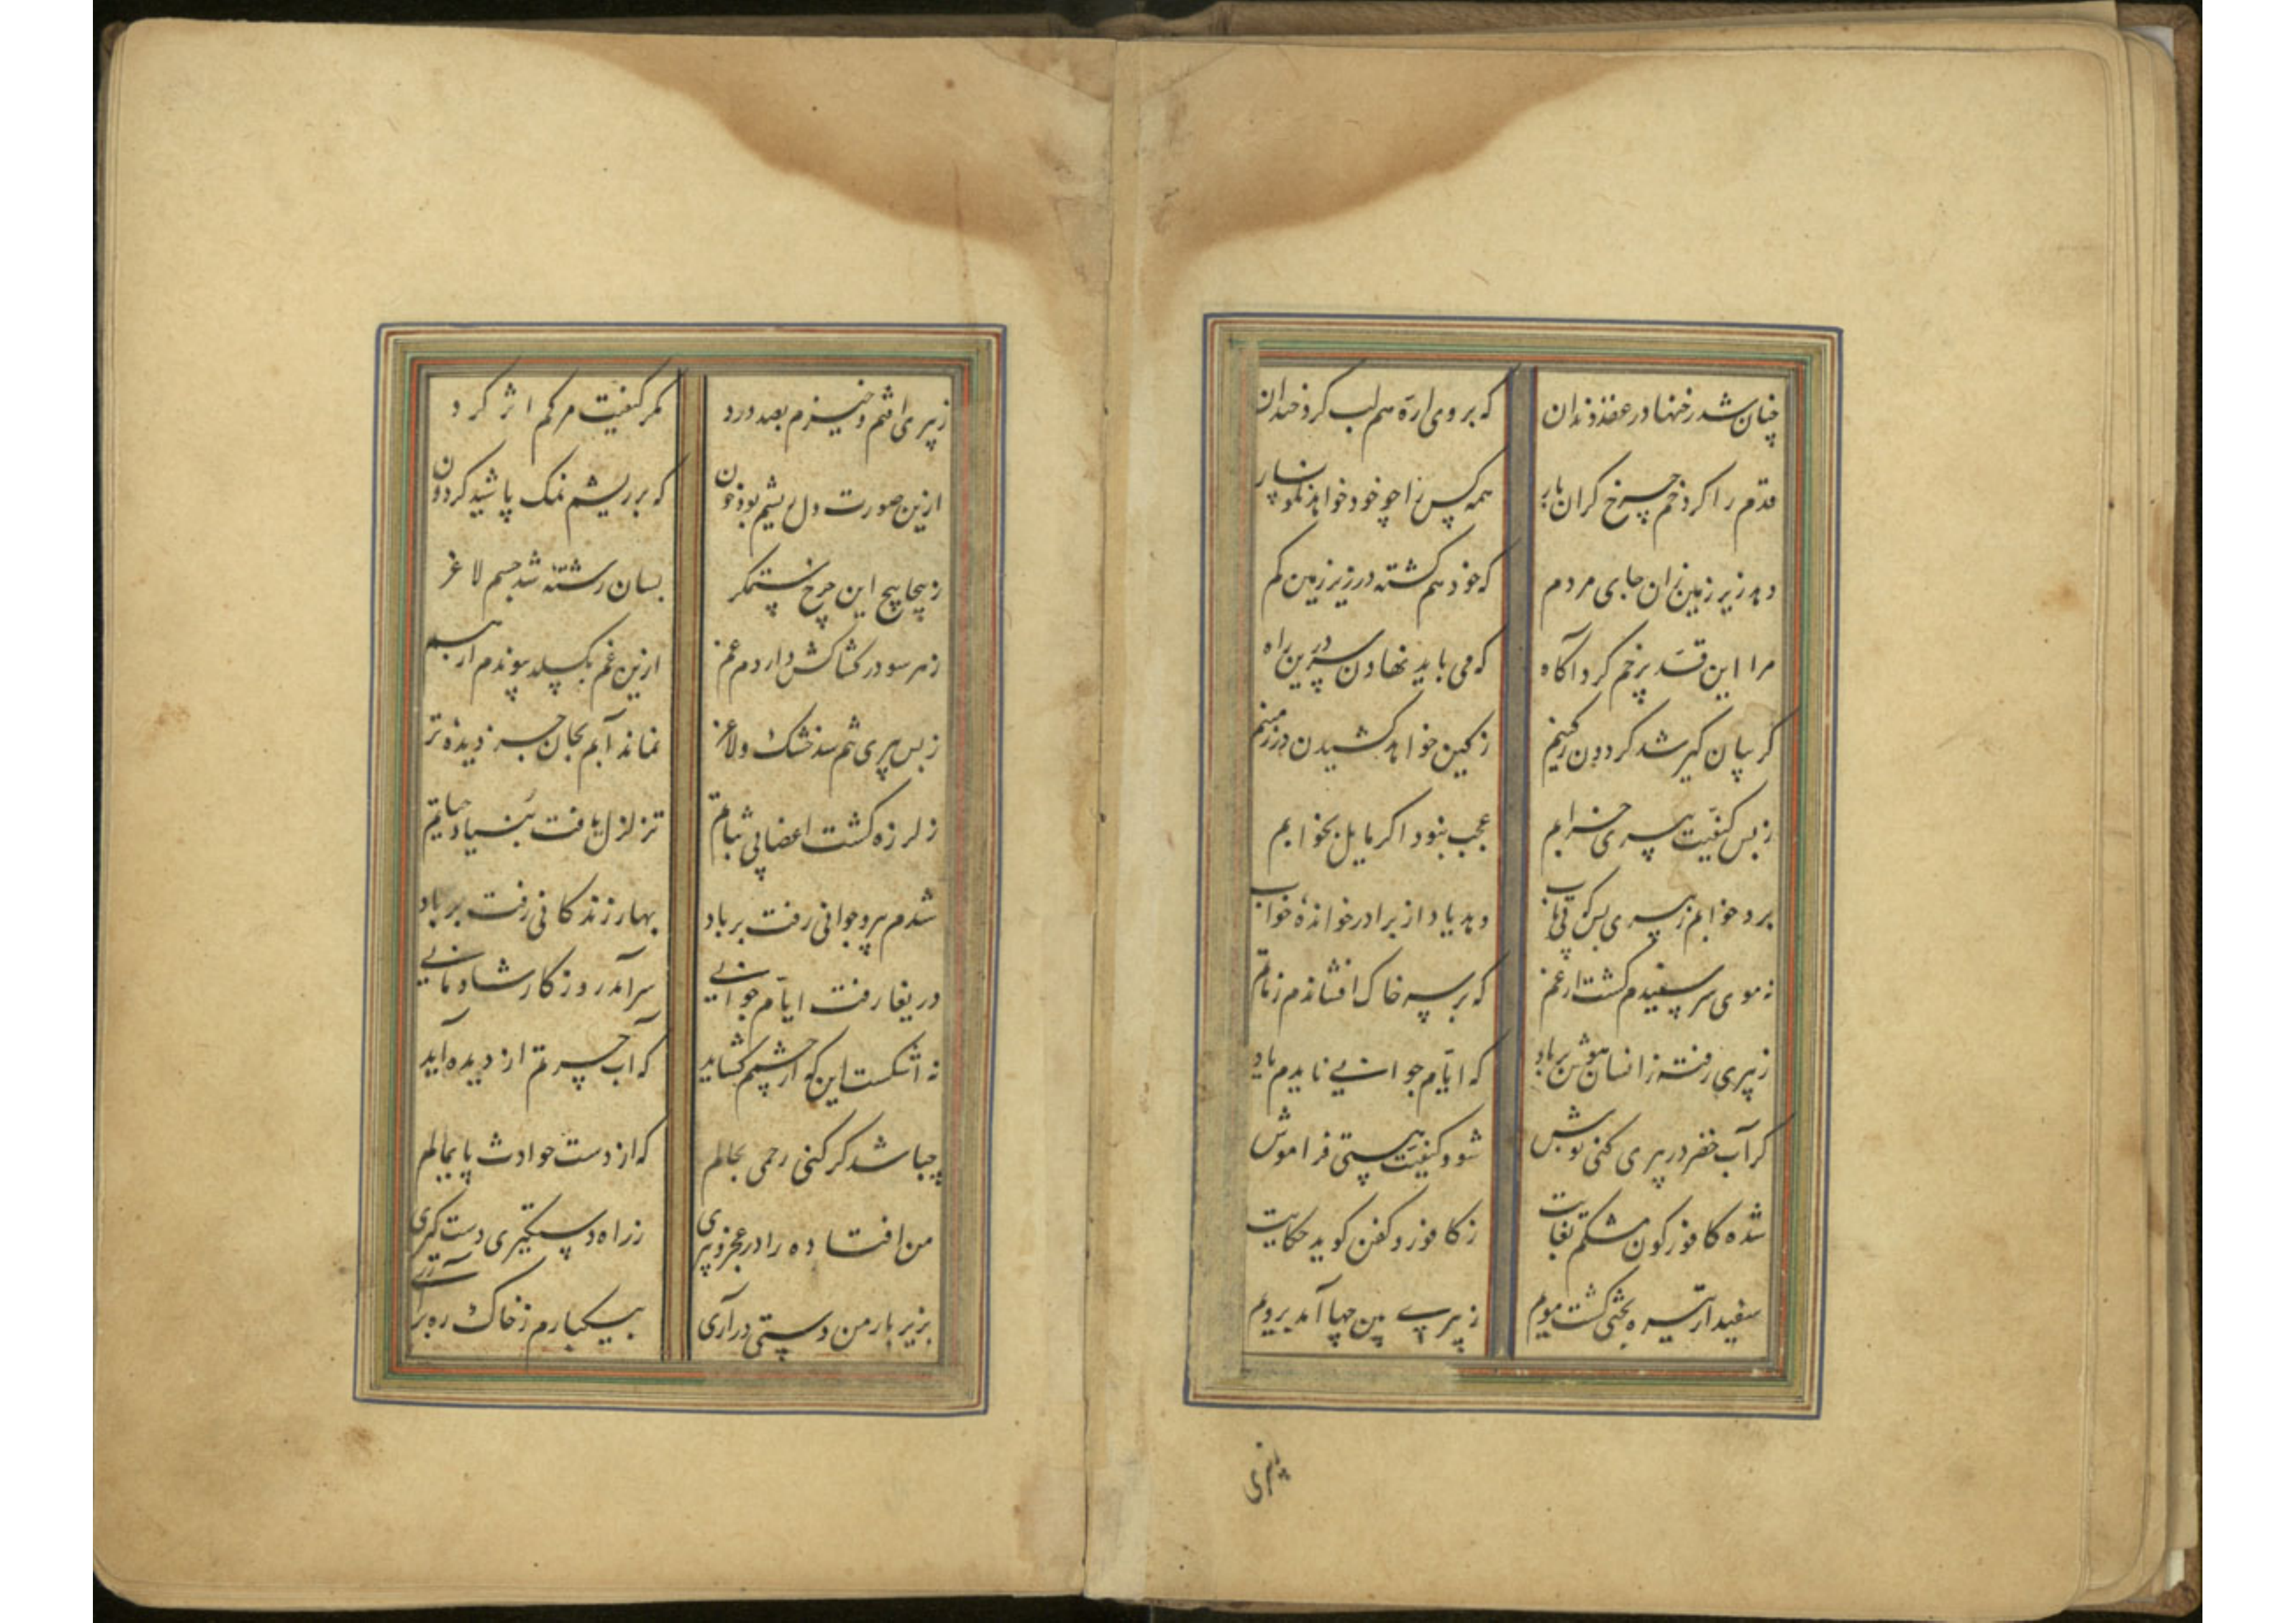 چنان شد رخنها در عقد دندان که بر وی ارّه هم لب کرد خندان
قدم را کرد خم چرخ کران بار همه کس را چو خود خواهد نکونسار
دهد زیر زمین زان جای مردم که خود هم کشته در زیر زمین کم
مرا این قد پرخم کرد آکاه که می باید نهادن سر درین راه
کریبان کیر شد کردون ز کینم ز کین خواهد کشیدن در زمینم
ز بس کیفیت پیری خرابم عجب نبود اکر مایل بخوابم
برد خوابم ز پیری بس که بی تاب دهد یاد از برادر خوانده خواب
نه موی سر سفیدم کشت از غم که بر سر خاک افشاندم ز ماتم
ز پیری رفته ز انسان هوش بر باد که ایام جوانی نایدم یاد
کر آب خضر در پیری کنی نوش شود کیفیت هستی فراموش
شده کافورکون مشکم بغایت ز کافور و کفن کوید حکایت
سفید از تیره بختی کشت مویم ز پیری بین چها آمد برویم
پیری
ز پیری افتم و خیزم بصد درد مکر کیفیت مرکم اثر کرد
ازین صورت دل ریشم بود خون که بر ریشم نمک پاشید کردون
ز پیچاپیچ این چرخ ستمکر بسان رشته شد جسم لاغر
ز هر سو در کشاکش داردم غم ازین غم بکسلد پیوندم از هم
ز بس پیری تنم شد خشک و لاغر نماند آبم بجان جز دیده تر
ز لرزه کشت اعضا بی ثباتم تزلزل یافت بنیاد حیاتم
شدم پیر و جوانی رفت بر باد بهار زندکانی رفت بر باد
دریغا رفت ایام جوانی سرآمد روزکار شادمانی
نه اشکست این که از چشمم کشاید که آب حسرتم از دیده آید
چه باشد کر کنی رحمی بحالم که از دست حوادث پایمالم
من افتاده را در عجز و پیری ز راه دستکیری دست کیری
بزیر بار من دستی درآری بیکبارم ز خاک ره برآری